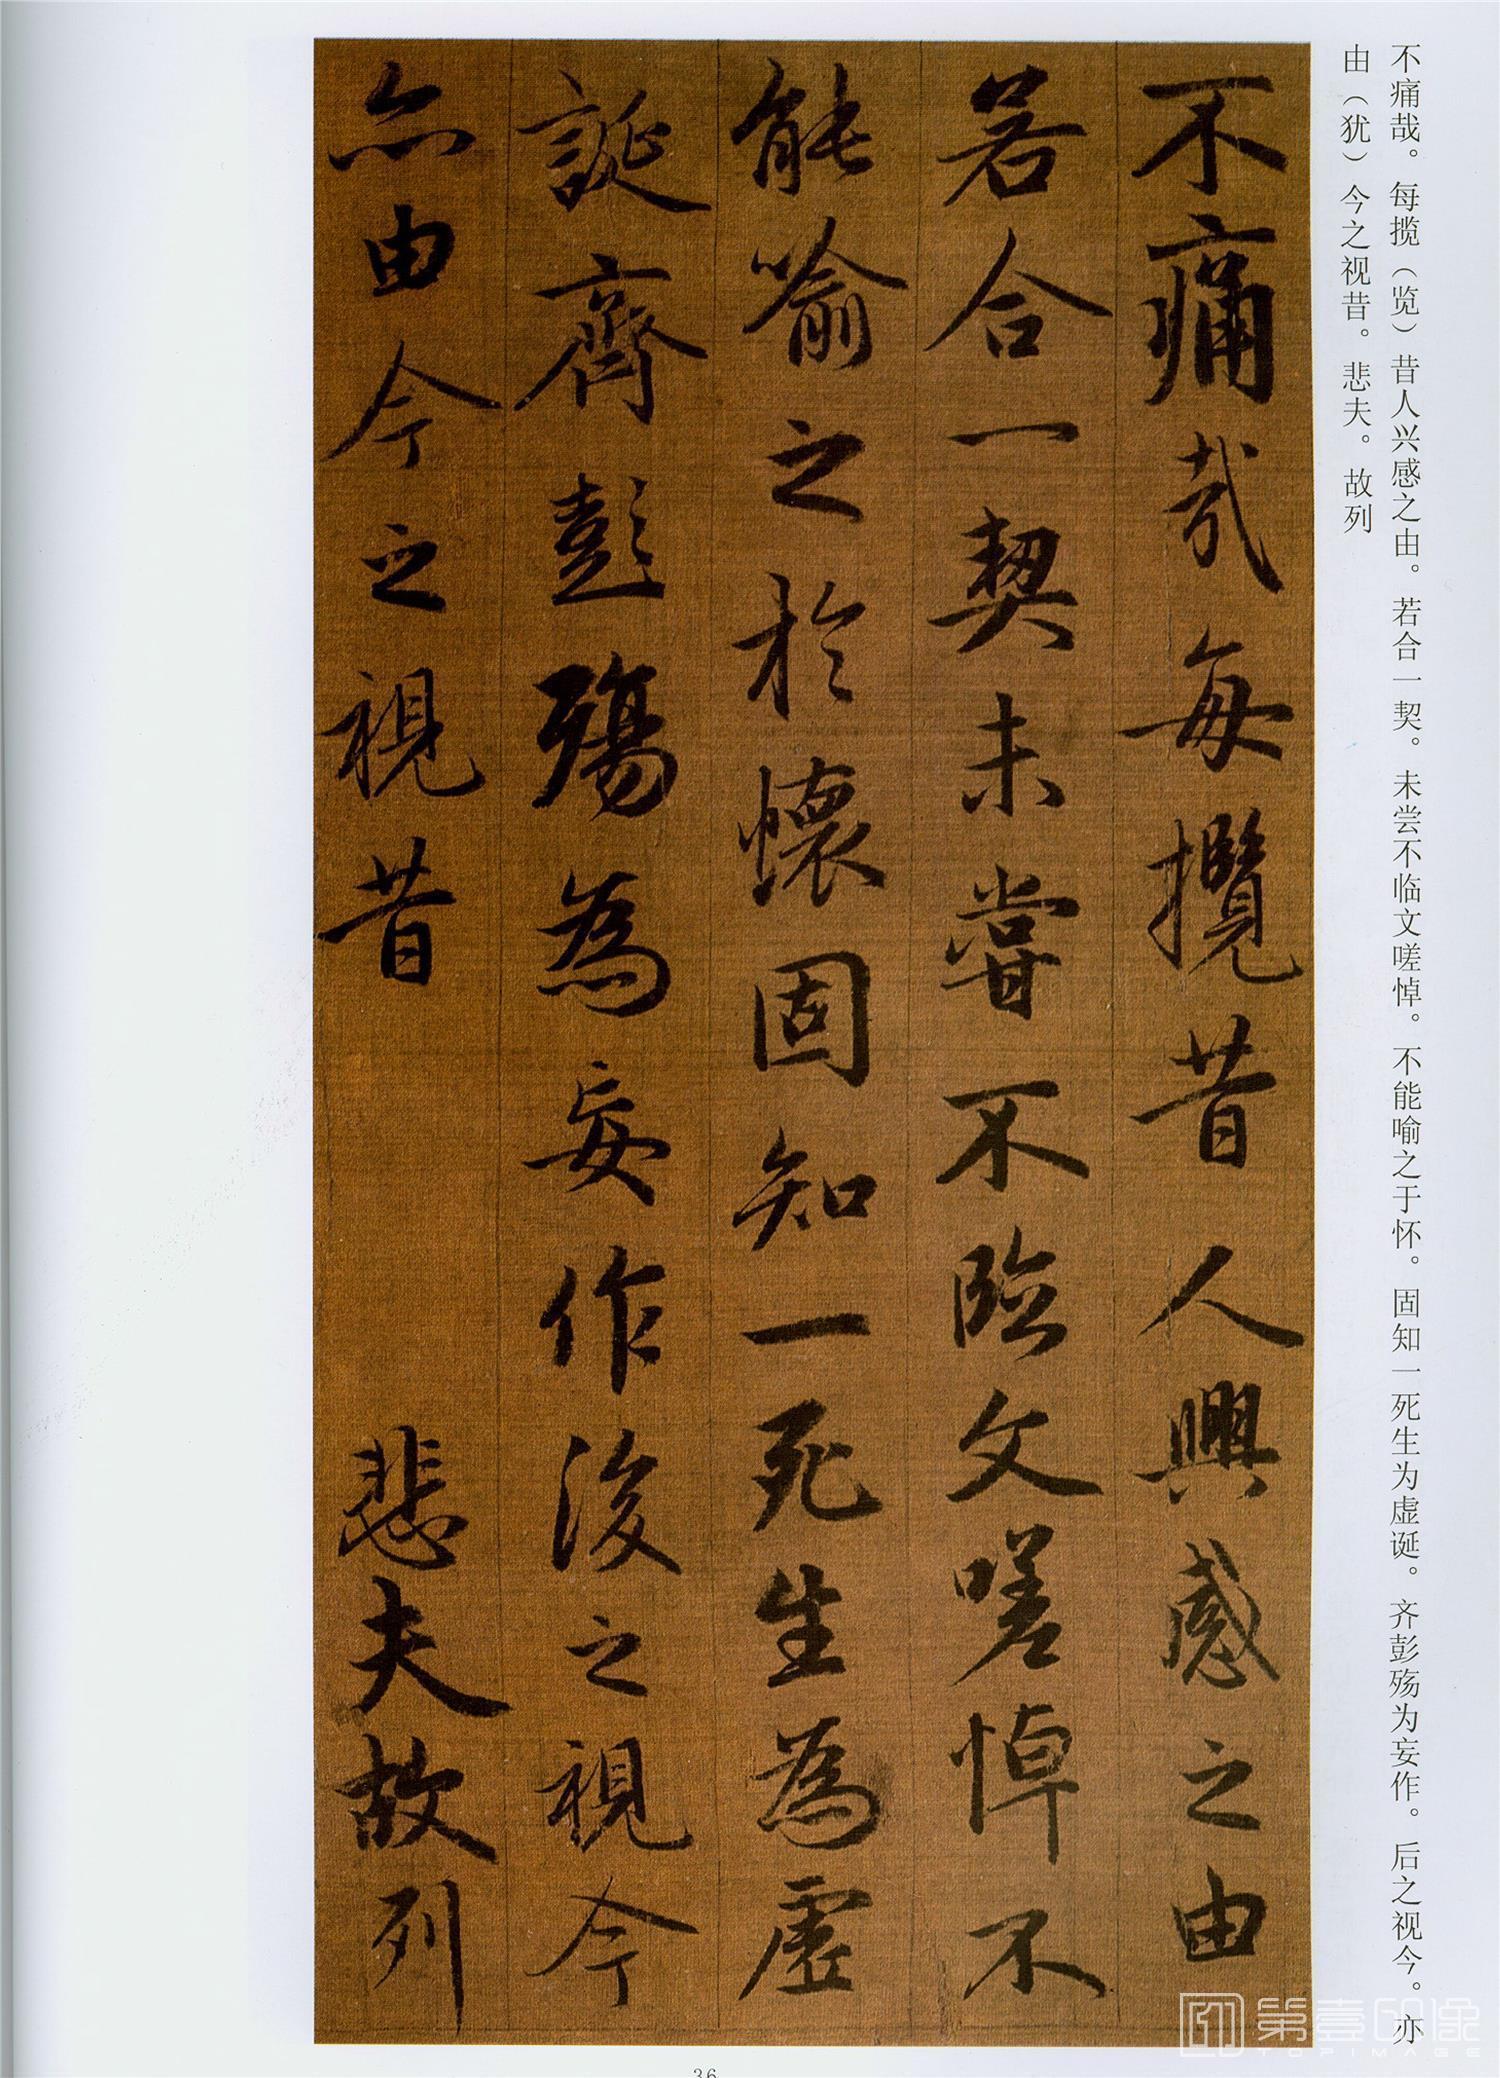 不痛哉。每揽（览）昔人兴感之由。若合一契。未尝不临文嗟悼。不能喻之于怀。固知一死生为虚诞。齐彭殇为妄作。后之视今。亦
由（犹）今之视昔。悲夫。故列
不痛哉每攬昔人興感之由
若合一契未嘗不臨文嗟悼不
能喻之於懷固知一死生為虛
誕齊彭殤為妄作後之視今
亦由今之視昔 悲夫故列
36
第壹印像
TOPIMAGE